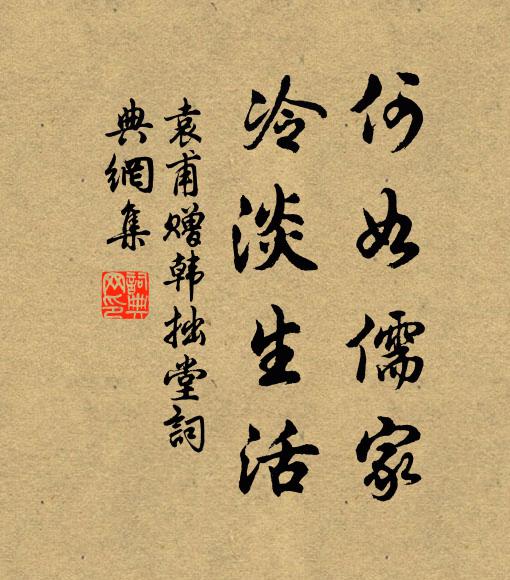 何如儒家
冷淡生活
袁甫赠韩拙堂詞
典網集
詞典
网印